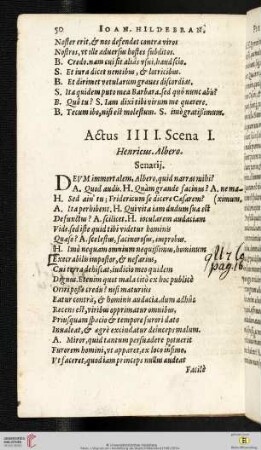 50 IOAN. HILDEBRAN.
Noster erit, & nos defendat contra viros
Nostros, vt ille aduersus hostes subditos.
B. Credo, nam cui sit alias vsui, haud scio.
S. Et iura dicet nentibus, & latricibus.
B. Et dirimet vetularum graues discordias.
S. Ita quidem puto mea Barbara, sed quò nunc abis?
B. Quò tu? S. Iam dixi tibi virum me quærere.
B. Tecum ibo, nisi est molestum. S. imò gratissimum.
Actus IIII. Scena I.
Henricus. Albero.
Senarij.
DEVM immortalem, Albero, quid narras mihi?
A. Quod audis. H. Quàm grande facinus? A. maximum.
H. Sed ain' tu; Fridericum se dicere Cæsarem?
A. Ita prohibent. H. Qui vita iam dudum functus est
Defunctus? A. scilicet. H. iocularem audaciam
Vide. sed iste quid tibi videtur hominis
Quæso? A. scelestus, facinorosus, improbus.
H. Imò nequam omnium nequissimus, hominum
Execrabilis impostor, & nefarius,
Cui terra dehiscat, iudicio meo quidem
Dignus. Etenim quæ mala citò ex hoc publicè
Oriri posse credis? nisi maturius
Eatur contrà, & hominis audacia, dum adhuc
Recens est, viribus opprimatur omnibus,
Priusquam spacio & tempore furori dato
Inualeat, & ægrè excindatur deinceps malum.
A. Miror, quid tantum persuadere potuerit
Furorem homini, vt apparet, ex loco infimo,
Vt faceret, quod iam princeps nullus audeat
Facilè
pag 16.